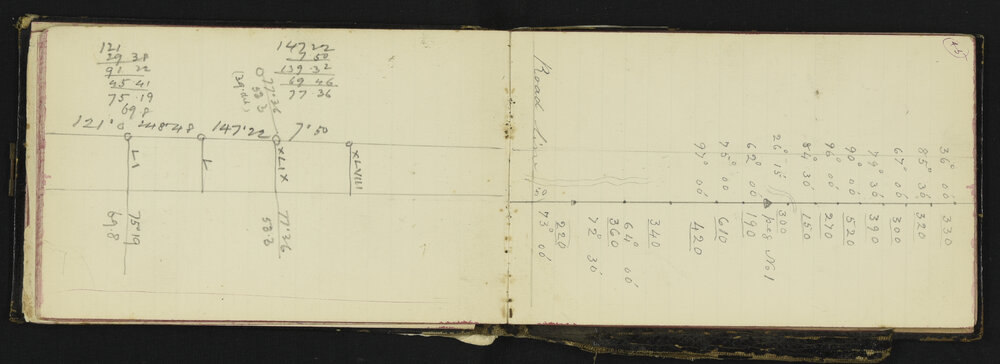 121
29 38
91 22
45 41
75.19
69 8
147 22
7 50
139.32
69 46
77 36
77°36
53.3
121° 0
248°48
147°22
7°50
LI
L
XLIX
XLVIII
75°19
69.8
77°36
53.3
Road
36° 00
85° 30
67° 00
79° 30
90° 00
96° 00
84° 30
26° 15
62° 00
75° 00
97° 00
330
320
300
390
520
270
150
300
peg No 1
190
610
420
340
64° 00
360
72° 30
220
73° 00